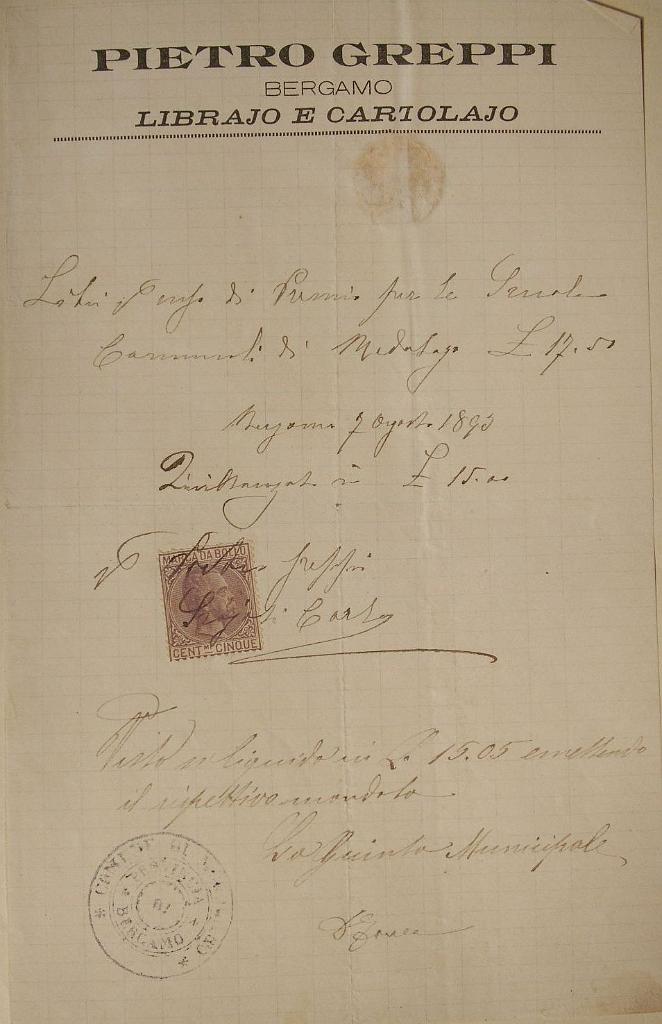 PIETRO GREPPI
BERGAMO
LIBRAJO E CARTOLAJO
Libri ad uso di Premio per le Scuole
Comunali di Medolago £ 17.50
Bergamo 7 Agosto 1893
Quittanzato in £ 15.00
Pietro Greppi
Carlo
MARCA DA BOLLO
CENT.MI CINQUE
Visto si liquida in L. 15.05 emettendo
il rispettivo mandato
La Giunta Municipale
DI
BERGAMO